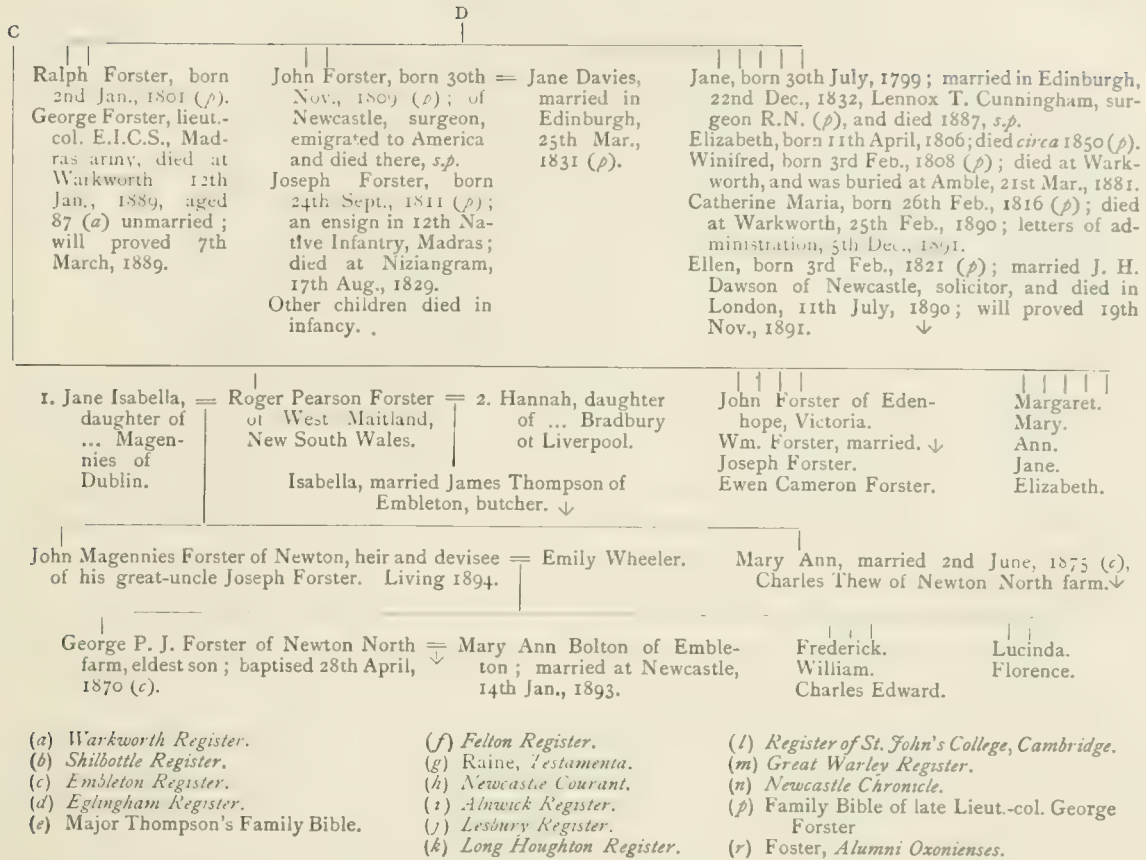 D
C
Ralph Forster, born
2nd Jan., 1801 (p).
George Forster, lieut.-
col. E.I.C.S., Mad-
ras army, died at
Warkworth 12th
Jan., 1889, aged
87 (a) unmarried ;
will proved 7th
March, 1889.
John Forster, born 30th
Nov., 1809 (p) ; of
Newcastle, surgeon,
emigrated to America
and died there, s.p.
Joseph Forster, born
24th Sept., 1811 (p) ;
an ensign in 12th Na-
tive Infantry, Madras ;
died at Niziangram,
17th Aug., 1829.
Other children died in
infancy.
= Jane Davies,
married in
Edinburgh,
25th Mar.,
1831 (p).
Jane, born 30th July, 1799 ; married in Edinburgh,
22nd Dec., 1832, Lennox T. Cunningham, sur-
geon R.N. (p), and died 1887, s.p.
Elizabeth, born 11th April, 1806; died circa 1850 (p).
Winifred, born 3rd Feb., 1808 (p) ; died at Wark-
worth, and was buried at Amble, 21st Mar., 1881.
Catherine Maria, born 26th Feb., 1816 (p) ; died
at Warkworth, 25th Feb., 1890 ; letters of ad-
ministration, 5th Dec., 1891.
Ellen, born 3rd Feb., 1821 (p) ; married J. H.
Dawson of Newcastle, solicitor, and died in
London, 11th July, 1890 ; will proved 19th
Nov., 1891. ↓
1. Jane Isabella,
daughter of
... Magen-
nies of
Dublin.
= Roger Pearson Forster =
of West Maitland,
New South Wales.
2. Hannah, daughter
of ... Bradbury
of Liverpool.
Isabella, married James Thompson of
Embleton, butcher. ↓
John Forster of Eden-
hope, Victoria.
Wm. Forster, married. ↓
Joseph Forster.
Ewen Cameron Forster.
Margaret.
Mary.
Ann.
Jane.
Elizabeth.
John Magennies Forster of Newton, heir and devisee
of his great-uncle Joseph Forster. Living 1894.
= Emily Wheeler.
Mary Ann, married 2nd June, 1875 (c),
Charles Thew of Newton North farm. ↓
George P. J. Forster of Newton North
farm, eldest son ; baptised 28th April,
1870 (c).
= ↓
Mary Ann Bolton of Emble-
ton ; married at Newcastle,
14th Jan., 1893.
Frederick.
William.
Charles Edward.
Lucinda.
Florence.
(a) Warkworth Register.
(b) Shilbottle Register.
(c) Embleton Register.
(d) Eglingham Register.
(e) Major Thompson's Family Bible.
(f) Felton Register.
(g) Raine, Testamenta.
(h) Newcastle Courant.
(i) Alnwick Register.
(j) Lesbury Register.
(k) Long Houghton Register.
(l) Register of St. John's College, Cambridge.
(m) Great Warley Register.
(n) Newcastle Chronicle.
(p) Family Bible of late Lieut.-col. George
Forster
(r) Foster, Alumni Oxonienses.